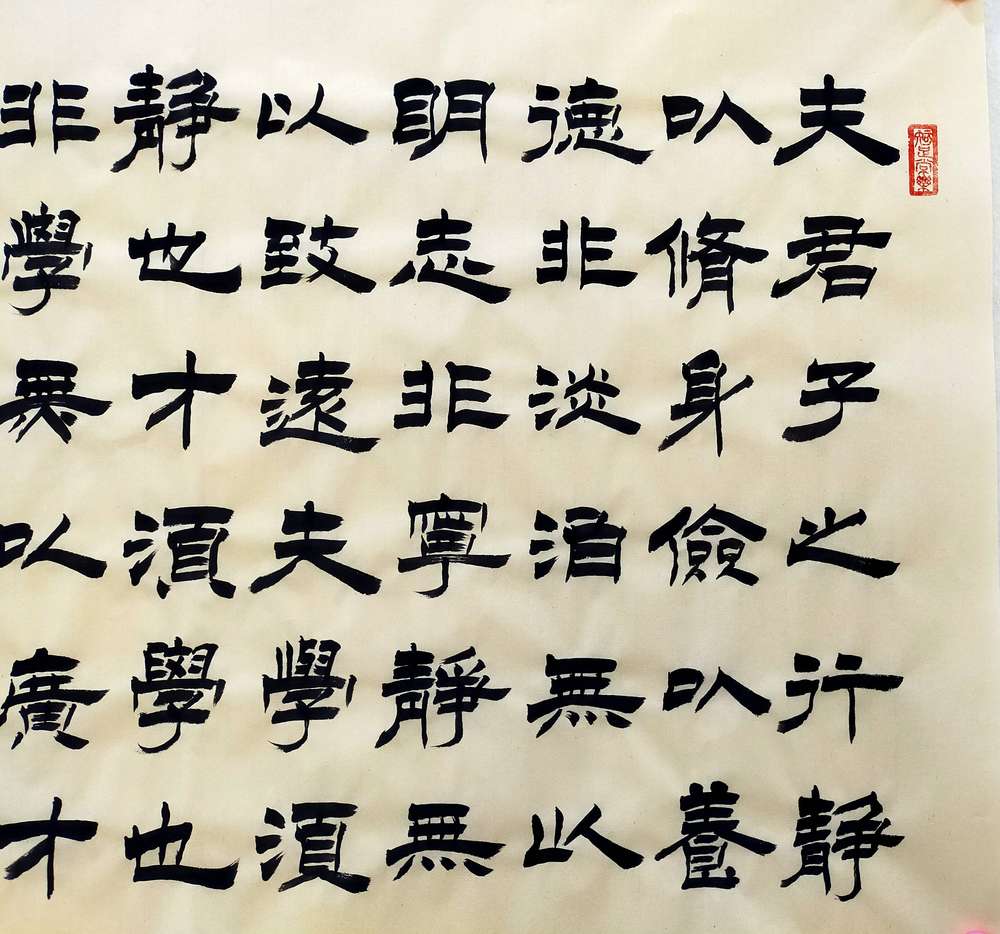 知足常樂
夫君子之行靜
以脩身儉以養
德非淡泊無以
明志非寧靜無
以致遠夫學須
靜也才須學也
非學無以廣才